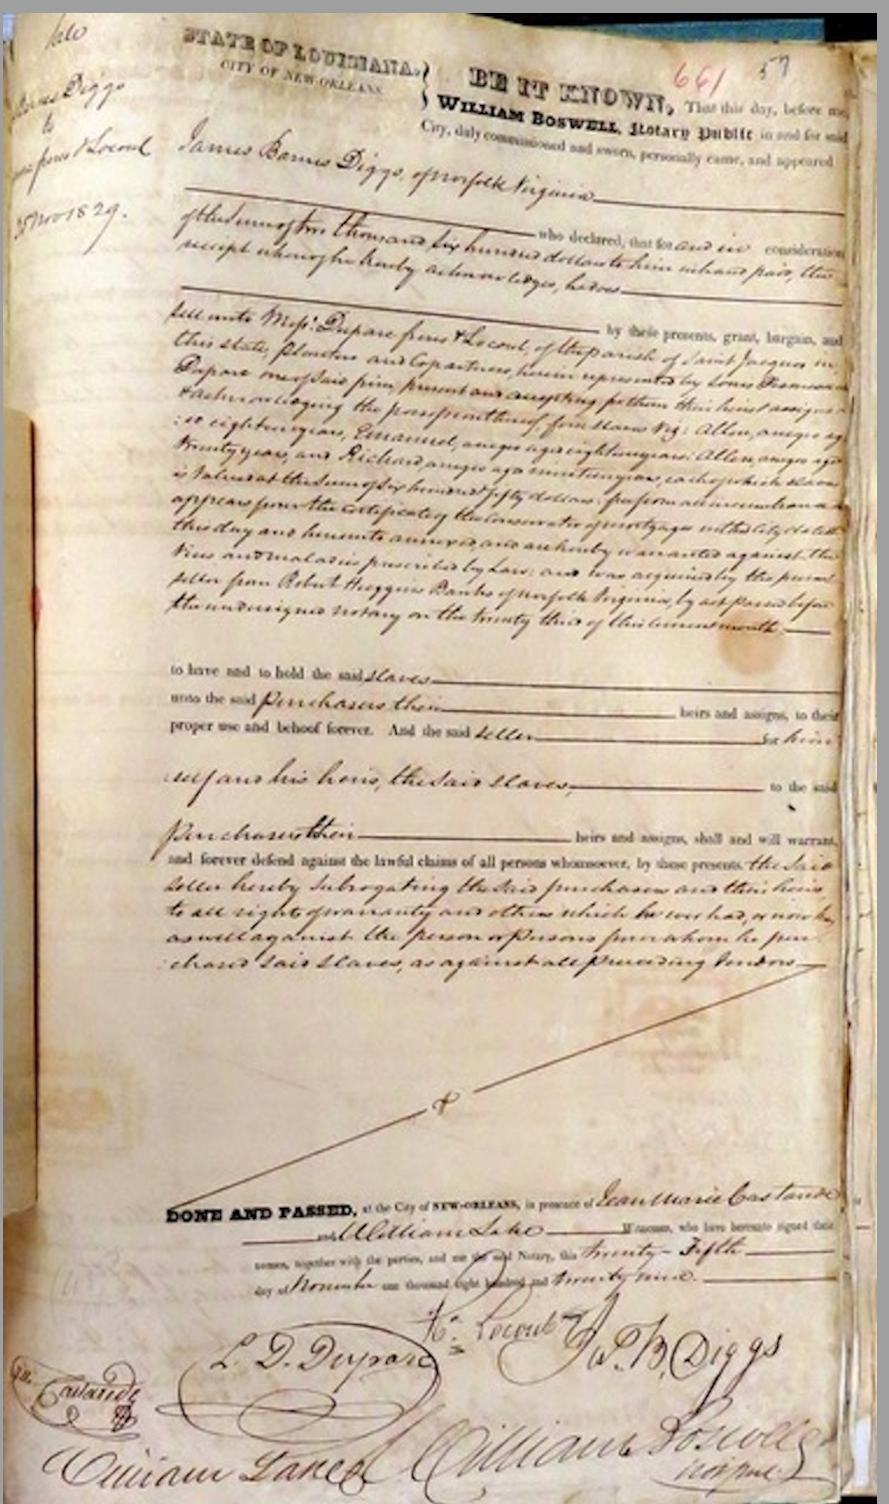 Sale
James Diggs
to
Dupare freres & Locoul
25 Nov 1829.
661 57
STATE OF LOUISIANA,
CITY OF NEW-ORLEANS
BE IT KNOWN, That this day, before me
WILLIAM BOSWELL, Notary Public in and for said
City, duly commissioned and sworn, personally came, and appeared
James Barnes Diggs, of Norfolk Virginia
who declared, that for and in consideration
of the sum of two thousand six hundred dollars to him in hand paid, the
receipt whereof he hereby acknowledges, he does
by these presents, grant, bargain, and
sell unto Messrs. Dupare freres & Locoul, of the parish of Saint Jacques in
this state, planters and Copartners, herein represented by Louis
Dupare one of said firm, present and accepting for them their heirs & assigns
& acknowledging the possession thereof four slaves viz: Allen, a negro ag
:ed eighteen years, Emanuel, a negro aged eighteen years: Allen, a negro aged
twenty years, and Richard, a negro aged nineteen years, each of which slaves
is valued at the sum of six hundred & fifty dollars: free from all incumbrance as
appears from the certificate of the Conservator of mortgages in this City dated
this day and hereunto annexed, and are hereby warranted against the
vices and maladies prescribed by Law: and was acquired by the present
seller from Robert Huggins Banks of Norfolk Virginia, by act passed before
the undersigned notary on the twenty third of this current month.
to have and to hold the said slaves
unto the said purchasers their heirs and assigns, to their
proper use and behoof forever. And the said seller for him
self and his heirs, the said slaves, to the said
purchasers their heirs and assigns, shall and will warrant,
and forever defend against the lawful claims of all persons whomsoever, by these presents. the said
seller hereby subrogating the said purchasers and their heirs
to all rights of warranty and others which he ever had, or now has,
as well against the person or persons from whom he pur
:chased said slaves, as against all preceding vendors
DONE AND PASSED, at the City of NEW-ORLEANS, in presence of Jean Marie Castande
and William Lake Witnesses, who have hereunto signed their
names, together with the parties, and me the said Notary, this twenty-fifth
day of November one thousand eight hundred and twenty nine.
Locoul
L. D. Dupare
Jas. B. Diggs
J. M. Castande
William Lake
William Boswell
Not. pub.